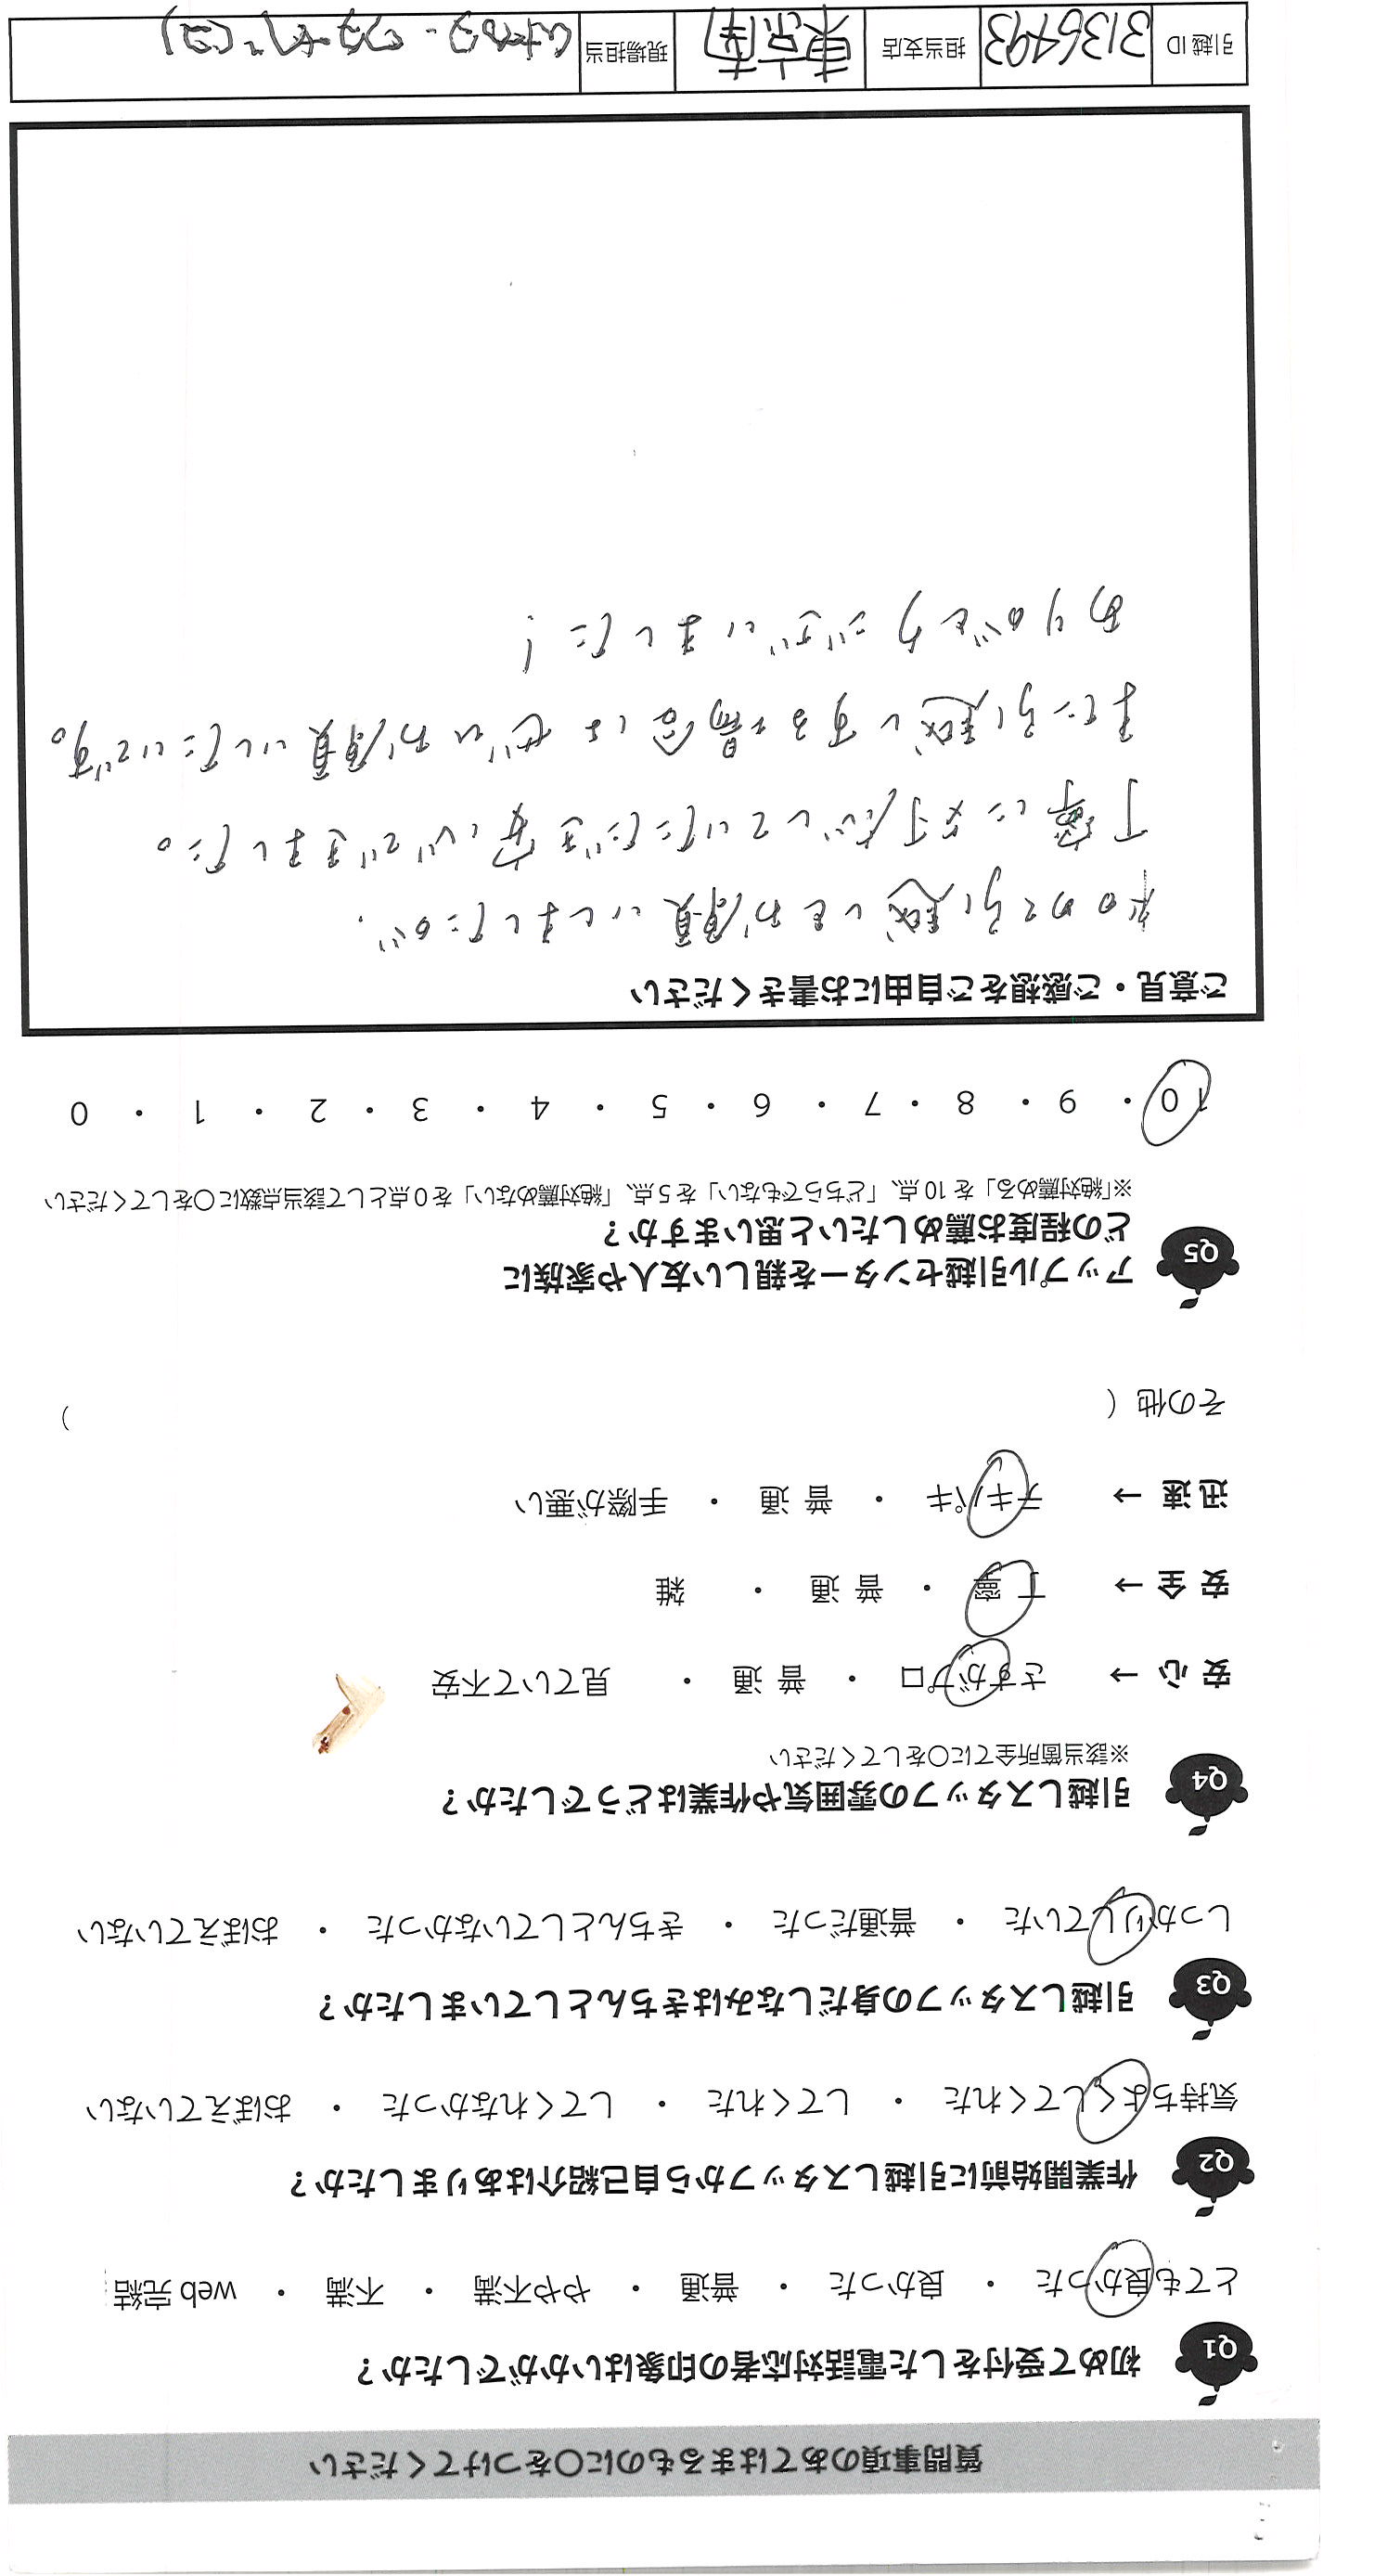 質問事項のあてはまるものに○をつけてください
Q1 初めて受付をした電話対応者の印象はいかがでしたか？
とても良かった ・ 良かった ・ 普通 ・ やや不満 ・ 不満 ・ web 完結
Q2 作業開始前に引越しスタッフから自己紹介はありましたか？
気持ちよくしてくれた ・ してくれた ・ してくれなかった ・ おぼえていない
Q3 引越しスタッフの身だしなみはきちんとしていましたか？
しっかりしていた ・ 普通だった ・ きちんとしていなかった ・ おぼえていない
Q4 引越しスタッフの雰囲気や作業はどうでしたか？
※該当箇所全てに○をしてください
安 心 → さすがプロ ・ 普 通 ・ 見ていて不安
安 全 → 丁 寧 ・ 普 通 ・ 雑
迅 速 → テキパキ ・ 普 通 ・ 手際が悪い
その他（ ）
Q5 アップル引越センターを親しい友人や家族に
どの程度お薦めしたいと思いますか？
※「絶対薦める」を 10 点、「どちらでもない」を 5 点、「絶対薦めない」を 0 点として該当点数に○をしてください
10 ・ 9 ・ 8 ・ 7 ・ 6 ・ 5 ・ 4 ・ 3 ・ 2 ・ 1 ・ 0
ご意見・ご感想をご自由にお書きください
初めて引越しをお願いしましたが、
丁寧に対応していただき安心できました。
また引越しする場合はぜひお願いしたいです。
ありがとうございました！
引越 ID 3136493 担当支店 東京南 現場担当